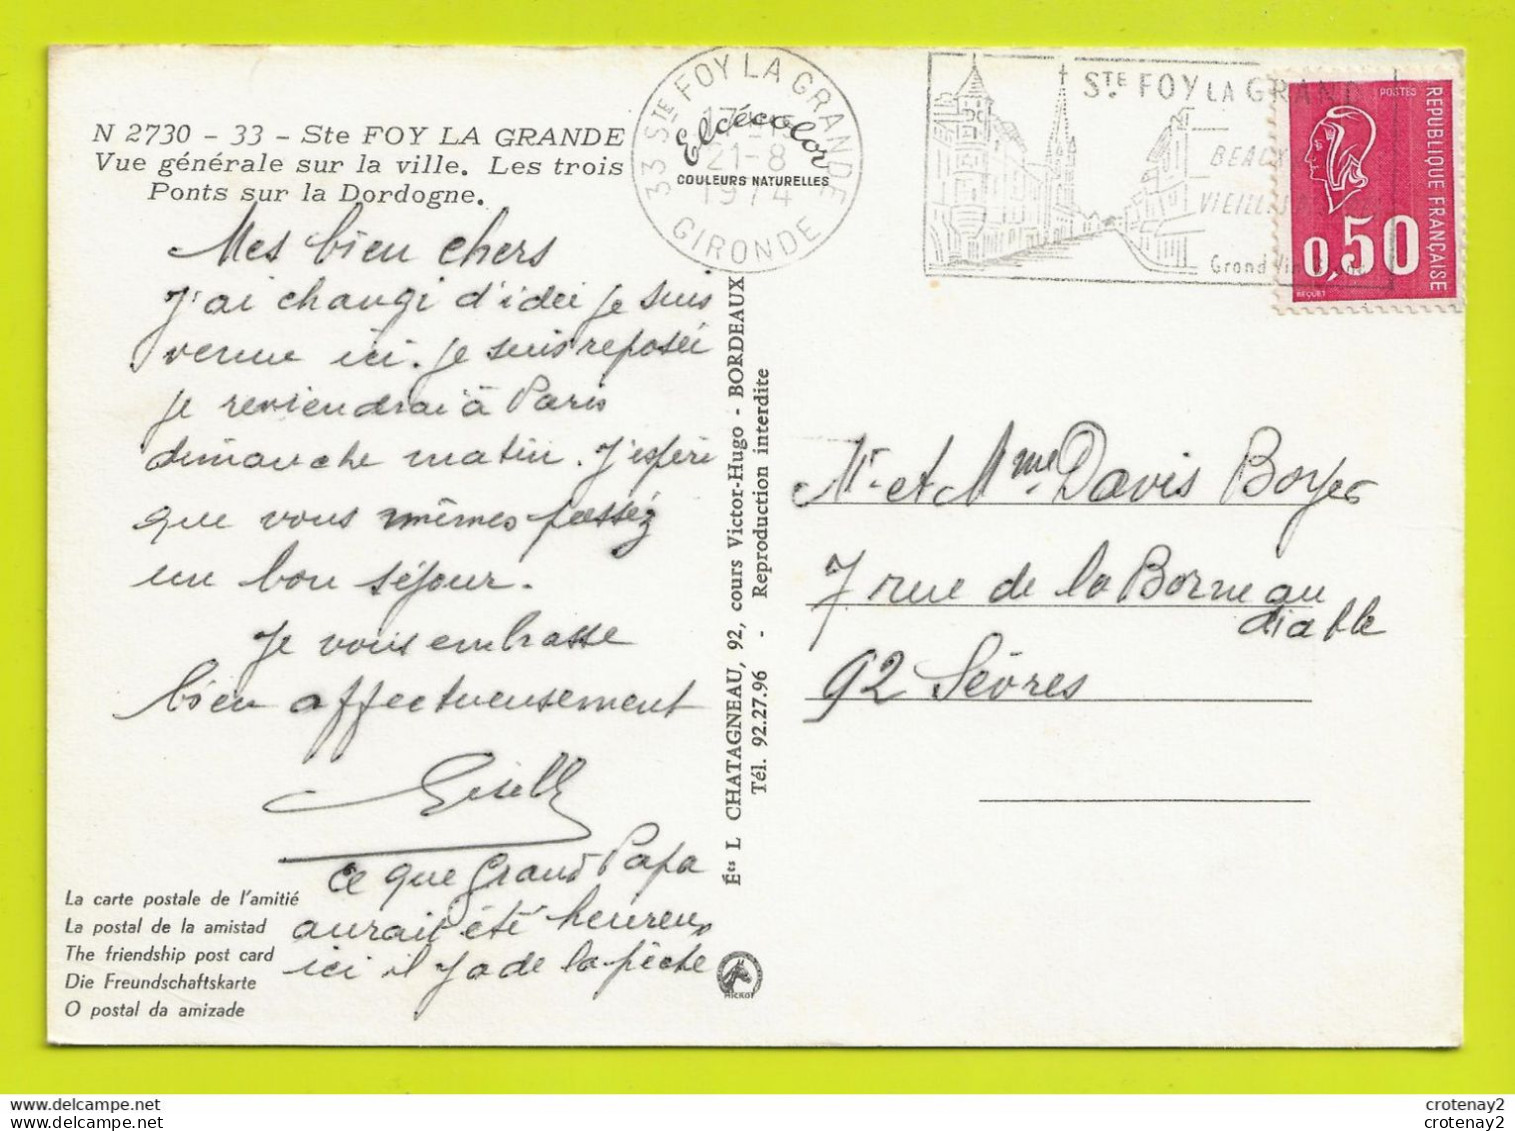 N 2730 - 33 - Ste FOY LA GRANDE
Vue générale sur la ville. Les trois
Ponts sur la Dordogne.
Mes bien chers
J'ai changi d'idée je suis
venue ici. je suis reposée
je reviendrai à Paris
dimanche matin. J'espère
que vous mêmes passez
un bon séjour.
Je vous embrasse
bien affectueusement
Gisèle
ce que Grand Papa
aurait été heureux
ici il y a de la pêche
La carte postale de l'amitié
La postal de la amistad
The friendship post card
Die Freundschaftskarte
O postal da amizade
33 STE FOY LA GRANDE
21-8
1974
GIRONDE
Elcécolor
COULEURS NATURELLES
Éts L CHATAGNEAU, 92, cours Victor-Hugo - BORDEAUX
Tél. 92.27.96 - Reproduction interdite
MICKOT
STE FOY LA GRAN
BEAUX
VIEILLES
Grand Vin
POSTES
REPUBLIQUE FRANÇAISE
0,50
BEQUET
Mr et Mme Davis Boyer
7 rue de la Borne au
diable
92 Sèvres
crotenay2
crotenay2